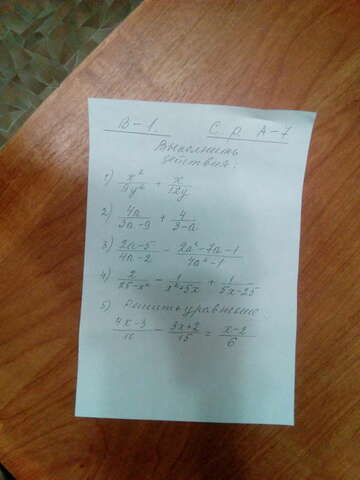 В-1. С. р. А-7
Выполнить
действия:
1) x²/9y² + x/12y
2) 4a/3a-9 + 4/3-a
3) 2a-5/4a-2 - 2a²-7a-1/4a²-1
4) 2/25-x² - 1/x²+5x + 1/5x-25
5) Решить уравнение:
4x-3/ - 3x+2/15 = x-2/6